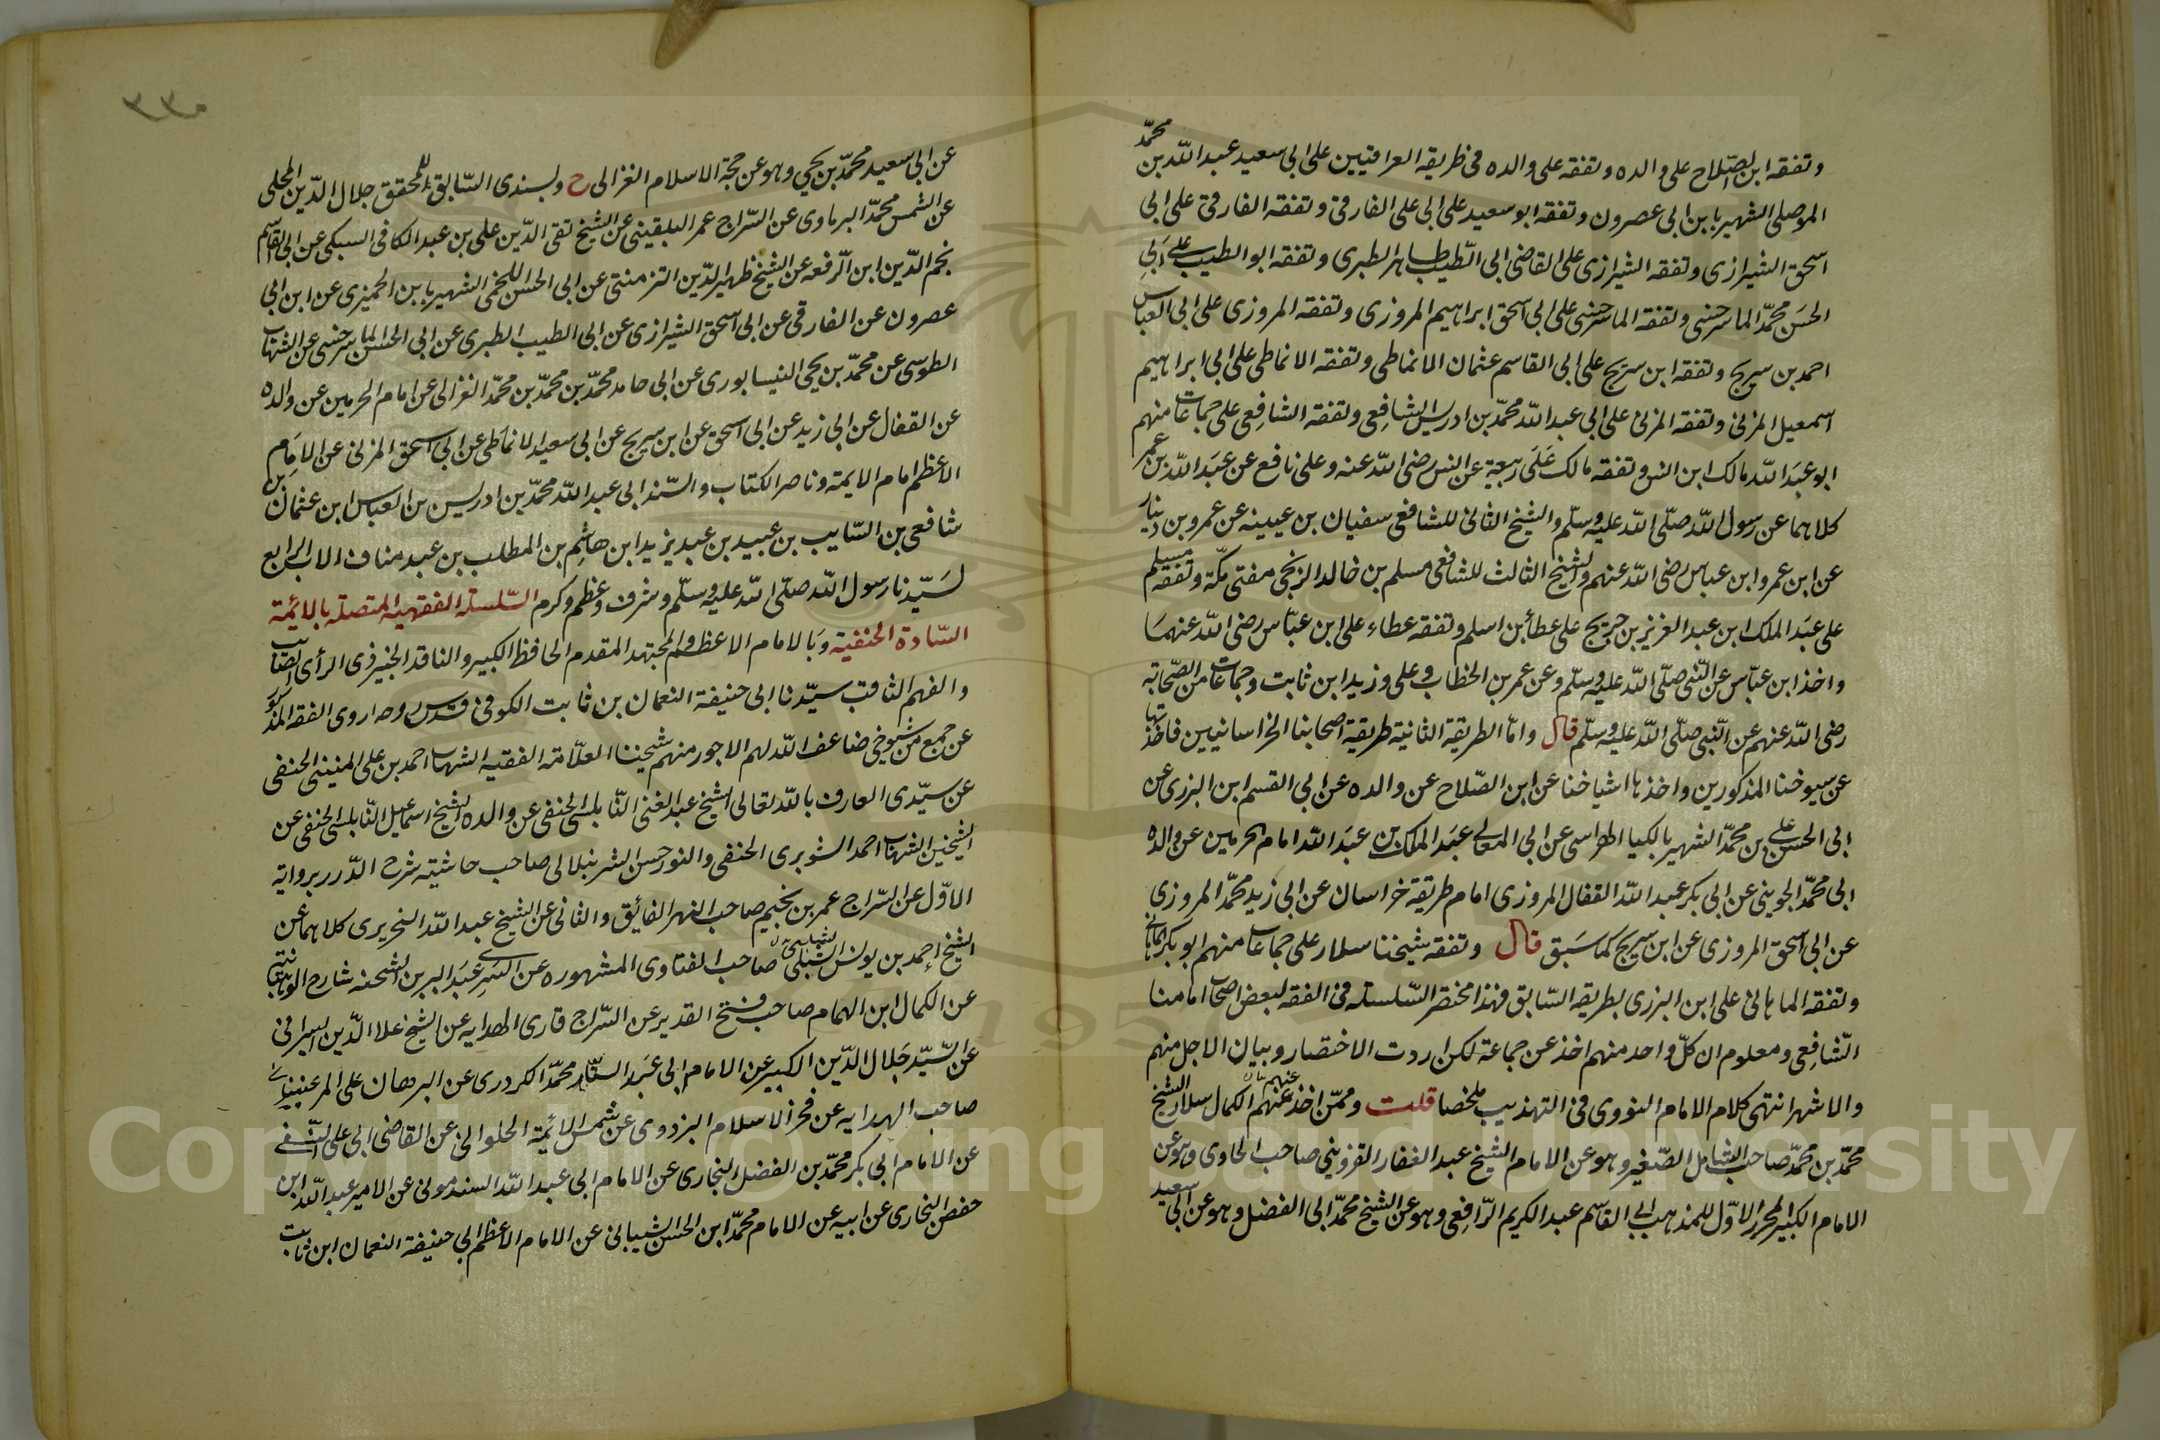 وتفقه ابن الصّلاح على والده وتفقه على والده فى طريقه العراقيين على ابى سعيد عبد الله بن محمّد
الموصلى الشهير بابن ابى عصرون وتفقه ابو سعيد على ابى على الفارقى وتفقه الفارقى على ابى
اسحق الشيرازى وتفقه الشيرازى على القاضى ابى الطّيب طاهر الطبرى وتفقه ابو الطيب على ابى
الحسن محمّد الماسرجسى وتفقه الماسرجسى على ابى اسحق ابراهيم المروزى وتفقه المروزى على ابى العباس
احمد بن سريج وتفقه ابن سريج على ابى القاسم عثمان الانماطى وتفقه الانماطى على ابى ابراهيم
اسمعيل المزنى وتفقه المزنى على ابى عبد الله محمّد بن ادريس الشافعى وتفقه الشافعى على جماعات منهم
ابو عبد الله مالك ابن انس وتفقه مالك على ربيعة عن انس رضى الله عنه وعلى نافع عن عبد الله بن عمر
كلاهما عن رسول الله صلّى الله عليه وسلّم والشيخ الثانى للشافعى سفيان بن عيينه عن عمرو بن دينار
عن ابن عمر وابن عباس رضى الله عنهم والشيخ الثالث للشافعى مسلم بن خالد الزنجى مفتى مكّة وتفقه مسلم
على عبد الملك ابن عبد العزيز بن جريج على عطأ بن اسلم وتفقه عطاء على ابن عبّاس رضى الله عنهما
واخذ ابن عبّاس عن النّبى صلّى الله عليه وسلّم وعن عمر بن الخطاب وعلى وزيد ابن ثابت وجماعات من الصّحابة
رضى الله عنهم عن النّبى صلّى الله عليه وسلّم قال وامّا الطريقة الثانية طريقة اصحابنا الخراسانيين فاخذتها
عن شيوخنا المذكورين واخذها اشياخنا عن ابن الصّلاح عن والده عن ابى القسم ابن البزرى عن
ابى الحسن على بن محمّد الشهير بالكيا الهراسى عن ابى المعالى عبد الملك بن عبد الله امام الحرمين عن والده
ابى محمّد الجوينى عن ابى بكر عبد الله القفال المروزى امام طريقة خراسان عن ابى زيد محمّد المروزى
عن ابى اسحق المروزى عن ابن سريج كما سبق قال وتفقه شيخنا سلار على جماعات منهم ابو بكر الماهانى
وتفقه الماهانى على ابن البزرى بطريقه السّابق فهذا مختصر السّلسله فى الفقه لبعض اصحاب امامنا
الشّافعى ومعلوم ان كلّ واحد منهم اخذ عن جماعة لكن اردت الاختصار وبيان الاجل منهم
والاشهر انتهى كلام الامام النووى فى التهذيب ملخصا قلت وممّن اخذ عنهم الكمال سلار الشيخ
محمّد بن محمّد صاحب الشامل الصّغير وهو عن الامام الشيخ عبد الغفار القزوينى صاحب الحاوى وهو عن
الامام الكبير المحرر الاوّل للمذهب ابى القاسم عبد الكريم الرّافعى وهو عن الشيخ محمّد ابى الفضل وهو عن ابى سعيد
عن ابى سعيد محمّد بن يحيى وهو عن حجة الاسلام الغزالى ح وبسندى السّابق للمحقق جلال الدّين المحلى
عن الشمس محمّد البرماوى عن السّراج عمر البلقينى عن الشيخ تقى الدّين على بن عبد الكافى السبكى عن ابى القاسم
نجم الدّين ابن الرّفعه عن الشيخ ظهير الدّين التزمنتى عن ابى الحسن اللخمى الشهير بابن الحميزى عن ابن ابى
عصرون عن الفارقى عن ابى اسحق الشيرازى عن ابى الطيب الطبرى عن ابى الحسن الماسرجسى عن الشهاب
الطوسى عن محمّد بن يحيى النيسابورى عن ابى حامد محمّد بن محمّد بن محمّد الغزالى عن امام الحرمين عن والده
عن القفال عن ابى زيد عن ابى اسحق عن ابن سريج عن ابى سعيد الانماطى عن ابى اسحق المزنى عن الامام
الاعظم امام الايمة وناصر الكتاب والسّنه ابى عبد الله محمّد بن ادريس بن العباس ابن عثمان بن
شافعى بن السّايب بن عبيد بن عبد يزيد ابن هاشم بن المطلب بن عبد مناف الاب الرابع
لسيّدنا رسول الله صلّى الله عليه وسلّم وشرف وعظم وكرم السّلسلة الفقهية المتصله بالائمة
السّادة الحنفية وبالامام الاعظم والمجتهد المقدم الحافظ الكبير والناقد الخبير ذى الرأى الصّائب
والفهم الثاقب سيّدنا ابى حنيفة النعمان بن ثابت الكوفى قدس روحه اروى الفقه المذكور
عن جمع من شيوخى ضاعف الله لهم الاجور منهم شيخنا العلّامة الفقيه الشهاب احمد بن على المنينى الحنفى
عن سيّدى العارف بالله تعالى الشيخ عبد الغنى النّابلسى الحنفى عن والده الشيخ اسماعيل النّابلسى الحنفى عن
الشيخين الشهاب احمد الشوبرى الحنفى والنور حسن الشرنبلالى صاحب حاشيته شرح الدّرر برواية
الاوّل عن السّراج عمر بن نجيم صاحب النهر الفائق والثانى عن الشيخ عبد الله النحريرى كلاهما عن
الشيخ احمد بن يونس الشبلى صاحب الفتاوى المشهوره عن السرى عبد البر بن الشحنه شارح الوهبانية
عن الكمال ابن الهمام صاحب فتح القدير عن السّراج قارى الهدايه عن الشيخ علا الدّين السيرافى
عن السّيّد جلال الدّين الكبير عن الامام ابى عبد السّتّار محمّد الكردرى عن البرهان على المرغينيانى
صاحب الهدايه عن فخر الاسلام البزدوى عن شمس الائمّة الحلوانى عن القاضى ابى على النّسفى
عن الامام ابى بكر محمّد بن الفضل البخارى عن الامام ابى عبد الله السندمونى عن الامير عبد الله ابن
حفص البخارى عن ابيه عن الامام محمّد ابن الحسن الشيبانى عن الامام الاعظم ابى حنيفة النعمان ابن ثابت
Copyright © King Saud University
1957